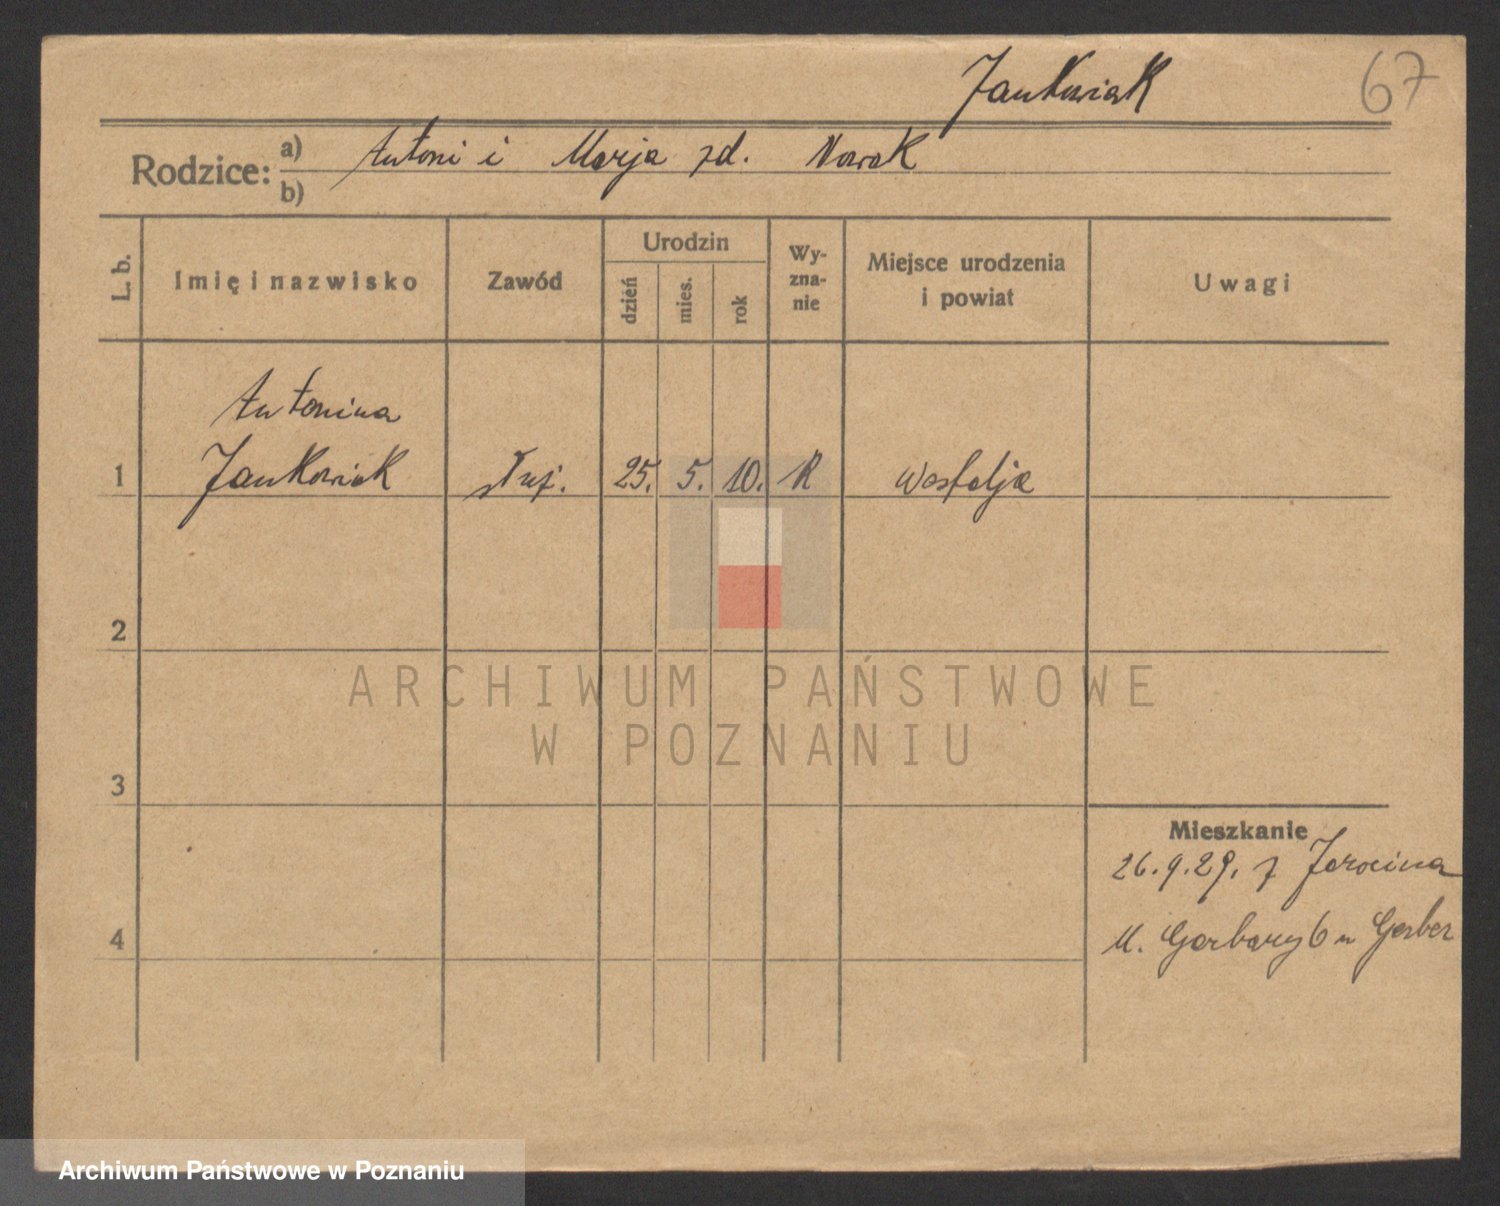 Jankowiak
67
Rodzice:
a) Antoni i Marja zd. Nowak
b)
L. b.
Imię i nazwisko
Zawód
Urodzin
dzień
mies.
rok
Wy-
zna-
nie
Miejsce urodzenia
i powiat
Uwagi
Antonina
1 Jankowiak służ. 25. 5. 10. R Westfalja
2
3
4
Mieszkanie
26.9.29. z Jarocina
M. Garbary 6 u Gerber
ARCHIWUM PAŃSTWOWE
W POZNANIU
Archiwum Państwowe w Poznaniu